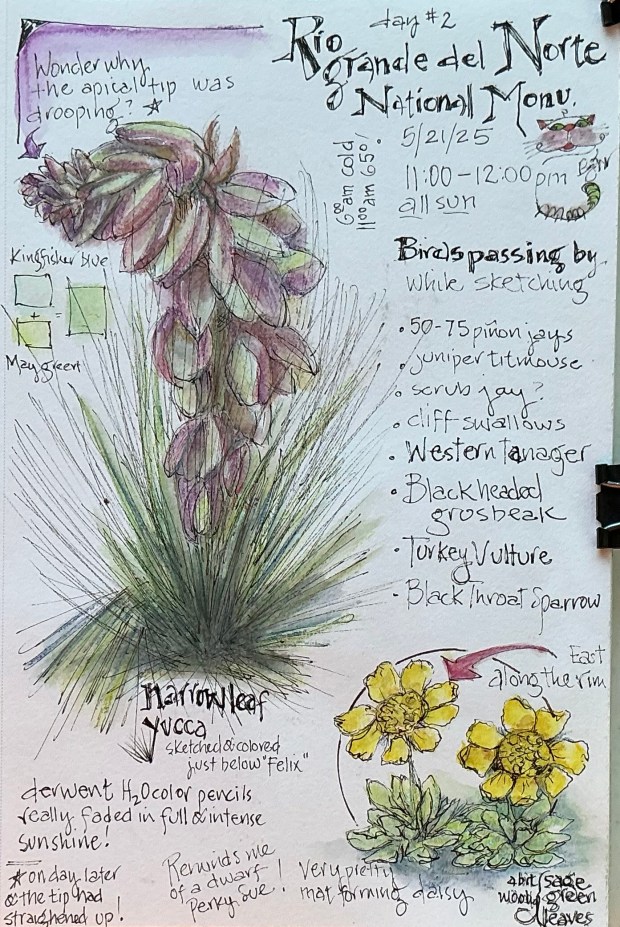 day #2
Rio
grande del Norte
National Monu.
Wonder why
the apical tip was
drooping? *
5/21/25
11:00 - 12:00 pm
all sun
6:00 am cold
11:00 am 65°!
Kingfisher blue
+
=
May green
Birds passing by
while sketching
• 50-75 piñon jays
• juniper titmouse
• scrub jay?
• cliff swallows
• Western Tanager
• Blackheaded
grosbeak
• Turkey Vulture
• Black Throat Sparrow
East
along the rim
narrowleaf
yucca
sketched & colored
just below "Felix"
derwent H2O color pencils
really faded in full & intense
sunshine!
* on day later
& the tip had
straightened up!
Reminds me
of a dwarf
Perky Sue!
Very pretty
mat forming daisy
a bit
wooly
sage
green
leaves